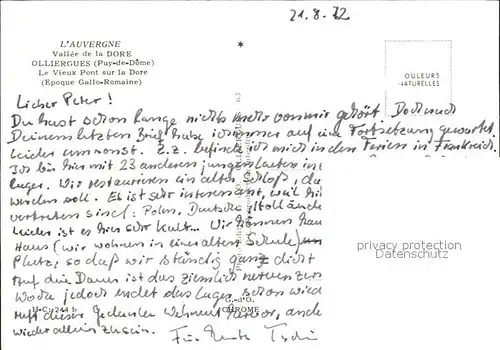 21.8.72
L'AUVERGNE
Vallée de la DORE
OLLIERGUES (Puy-de-Dôme)
Le Vieux Pont sur la Dore
(Epoque Gallo-Romaine)
COULEURS
NATURELLES
Lieber Peter!
Du hast schon lange nichts mehr von mir gehört. Doch auch
Deinem letzten Brief habe ich immer auf eine Fortsetzung gewartet,
leider umsonst. Z.Z. befinde ich mich in den Ferien in Frankreich.
Ich bin hier mit 23 anderen jungen Leuten im
Lager. Wir restaurieren ein altes Schloß, da
werden soll. Es ist sehr interessant, weil
vertreten sind: Polen, Deutsche, Holländ
Leider ist es hier sehr kalt... Wir können
Haus (wir wohnen in einer alten Schule)
Platz, so daß wir ständig ganz dicht
Auf die Dauer ist das ziemlich nerven
Woche jedoch endet das Lager schon
ruft dieser Gedanke Wehmut hervor,
wieder allein zu sein.
privacy protection
Datenschutz
244 b
CHROME